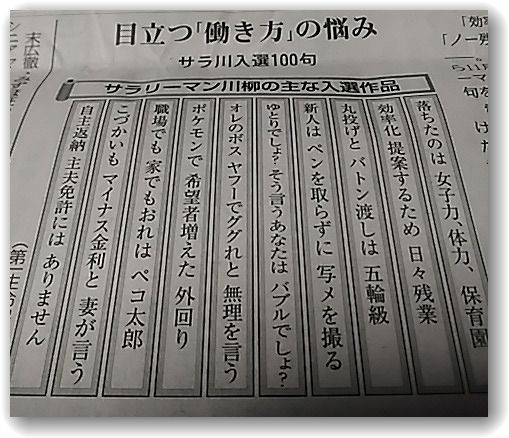 目立つ「働き方」の悩み
サラ川入選100句
サラリーマン川柳の主な入選作品
落ちたのは 女子力、体力、保育園
効率化 提案するため 日々残業
丸投げと バトン渡しは 五輪級
新人は ペンを取らずに 写メを撮る
ゆとりでしょ? そう言うあなたは バブルでしょ?
オレのボス ヤフーでググれと 無理を言う
ポケモンで 希望者増えた 外回り
職場でも 家でもおれは ペコ太郎
こづかいも マイナス金利と 妻が言う
自主返納 主夫免許には ありません
末広徹